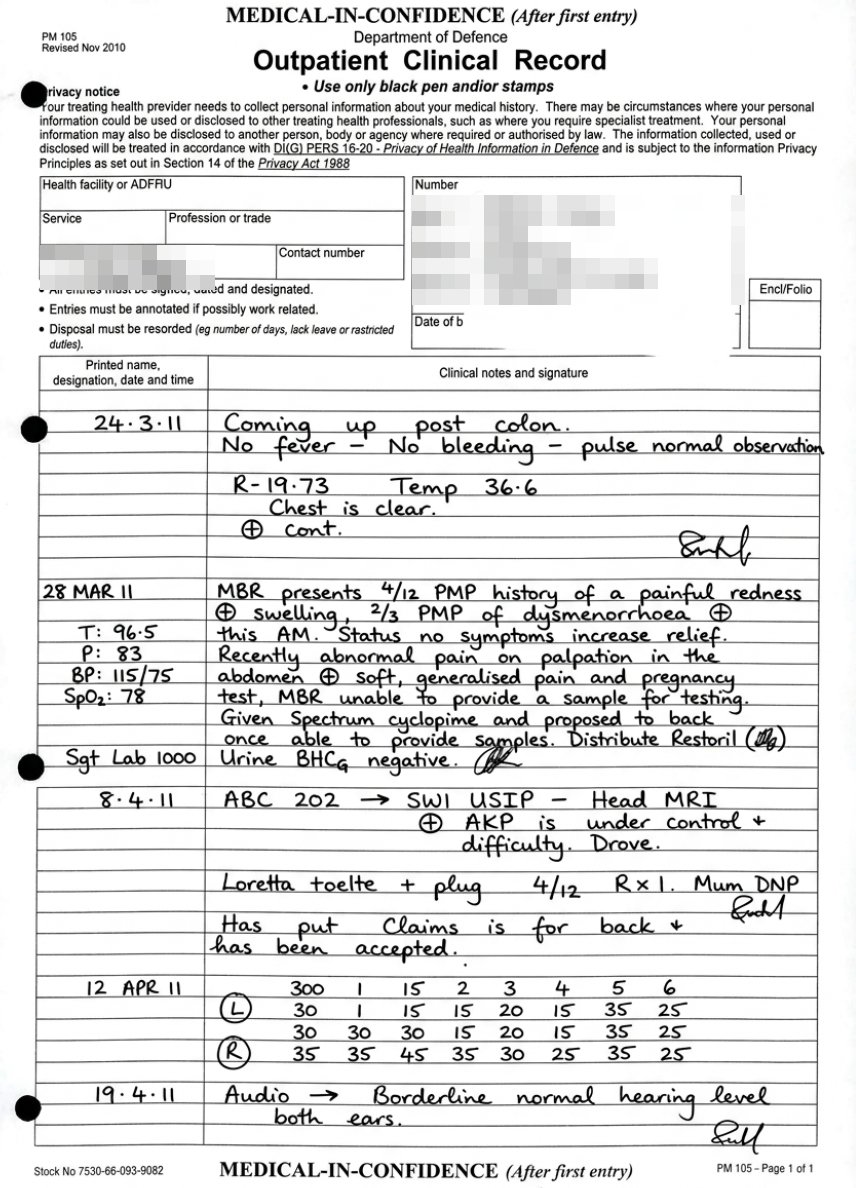 MEDICAL-IN-CONFIDENCE (After first entry)
PM 105
Revised Nov 2010
Department of Defence
Outpatient Clinical Record
• Use only black pen andior stamps
rivacy notice
Your treating health previder needs to collect personal information about your medical history. There may be circumstances where your personal
information could be used or disclosed to other treating health professionals, such as where you require specialist treatment. Your personal
information may also be disclosed to another person, body or agency where required or authorised by law. The information collected, used or
disclosed will be treated in accordance with DI(G) PERS 16-20 - Privacy of Health Information in Defence and is subject to the information Privacy
Principles as set out in Section 14 of the Privacy Act 1988
Health facility or ADFRU
Number
Service
Profession or trade
Contact number
• All entries must be signed, dated and designated.
• Entries must be annotated if possibly work related.
• Disposal must be resorded (eg number of days, lack leave or restricted
duties).
Date of b
Encl/Folio
Printed name,
designation, date and time
Clinical notes and signature
24.3.11 Coming up post colon.
No fever – No bleeding – pulse normal observation
R-19.73 Temp 36.6
Chest is clear.
⊕ cont.
28 MAR 11 MBR presents 4/12 PMP history of a painful redness
⊕ swelling, 2/3 PMP of dysmenorrhoea ⊕
T: 96.5 this AM. Status no symptoms increase relief.
P: 83 Recently abnormal pain on palpation in the
BP: 115/75 abdomen ⊕ soft, generalised pain and pregnancy
SpO2: 78 test, MBR unable to provide a sample for testing.
Given Spectrum cyclopime and proposed to back
once able to provide samples. Distribute Restoril
Sgt Lab 1000 Urine BHCG negative.
8.4.11 ABC 202 → SWI USIP – Head MRI
⊕ AKP is under control +
difficulty. Drove.
Loretta toelte + plug 4/12 R x 1. Mum DNP
Has put Claims is for back +
has been accepted.
12 APR 11 300 1 15 2 3 4 5 6
(L) 30 1 15 15 20 15 35 25
30 30 30 15 20 15 35 25
(R) 35 35 45 35 30 25 35 25
19.4.11 Audio → Borderline normal hearing level
both ears.
Stock No 7530-66-093-9082
MEDICAL-IN-CONFIDENCE (After first entry)
PM 105 – Page 1 of 1